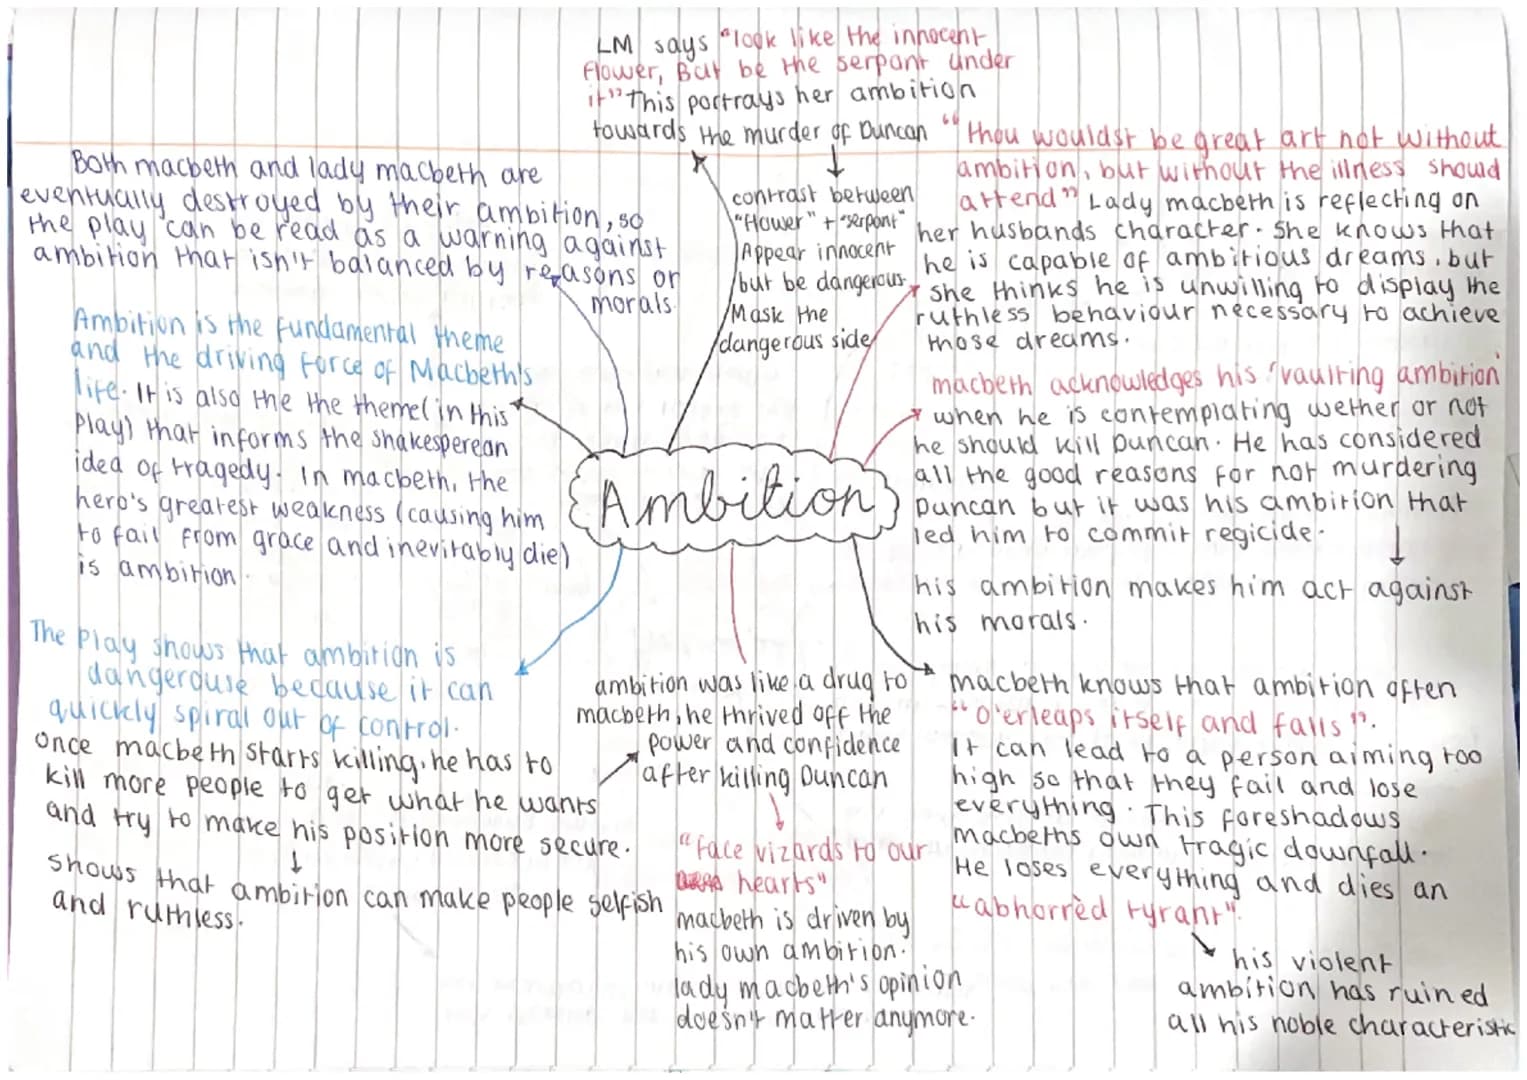 LM says "look like the innocent
flower, But be the serpant under
it" This portrays her ambition
towards the murder of Duncan
contrast between
"flower" + "serpant"
Appear innocent
but be dangerous
Mask the
dangerous side
"thou wouldst be great art not without
ambition, but without the illness should
attend" Lady macbeth is reflecting on
her husbands character. She knows that
he is capable of ambitious dreams, but
she thinks he is unwilling to display the
ruthless behaviour necessary to achieve
those dreams.
Both macbeth and lady macbeth are
eventually destroyed by their ambition, so
the play can be read as a warning against
ambition that isn't balanced by reasons or
morals.
Ambition is the fundamental theme
and the driving force of Macbeth's
life. It is also the the theme (in this
play) that informs the shakesperean
idea of tragedy. In macbeth, the
hero's greatest weakness (causing him
to fail from grace and inevitably die)
is ambition.
Ambition
macbeth acknowledges his 'vaulting ambition'
when he is contemplating wether or not
he should kill Duncan. He has considered
all the good reasons for not murdering
Duncan but it was his ambition that
led him to commit regicide.
his ambition makes him act against
his morals.
The play shows that ambition is
dangerouse because it can
quickly spiral out of control.
Once macbeth starts killing, he has to
kill more people to get what he wants
and try to make his position more secure.
shows that ambition can make people selfish
and ruthless.
ambition was like a drug to
macbeth, he thrived off the
power and confidence
after killing Duncan
"face vizards to our
hearts"
macbeth is driven by
his own ambition.
lady macbeth's opinion
doesn't matter anymore.
macbeth knows that ambition often
"O'erleaps itself and falls".
It can lead to a person aiming too
high so that they fail and lose
everything. This foreshadows
macbeths own tragic downfall.
He loses everything and dies an
"abhorrèd tyrant".
his violent
ambition has ruined
all his noble characteristic